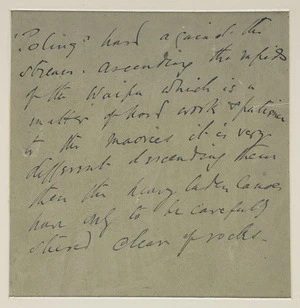 "Poling" hard against the
stream. Ascending the rapids
of the Waipa which is a
matter of hard work & patience
to the maories it is very
different descending them
then the heavy laden canoes
have only to be carefully
steered clear of rocks.